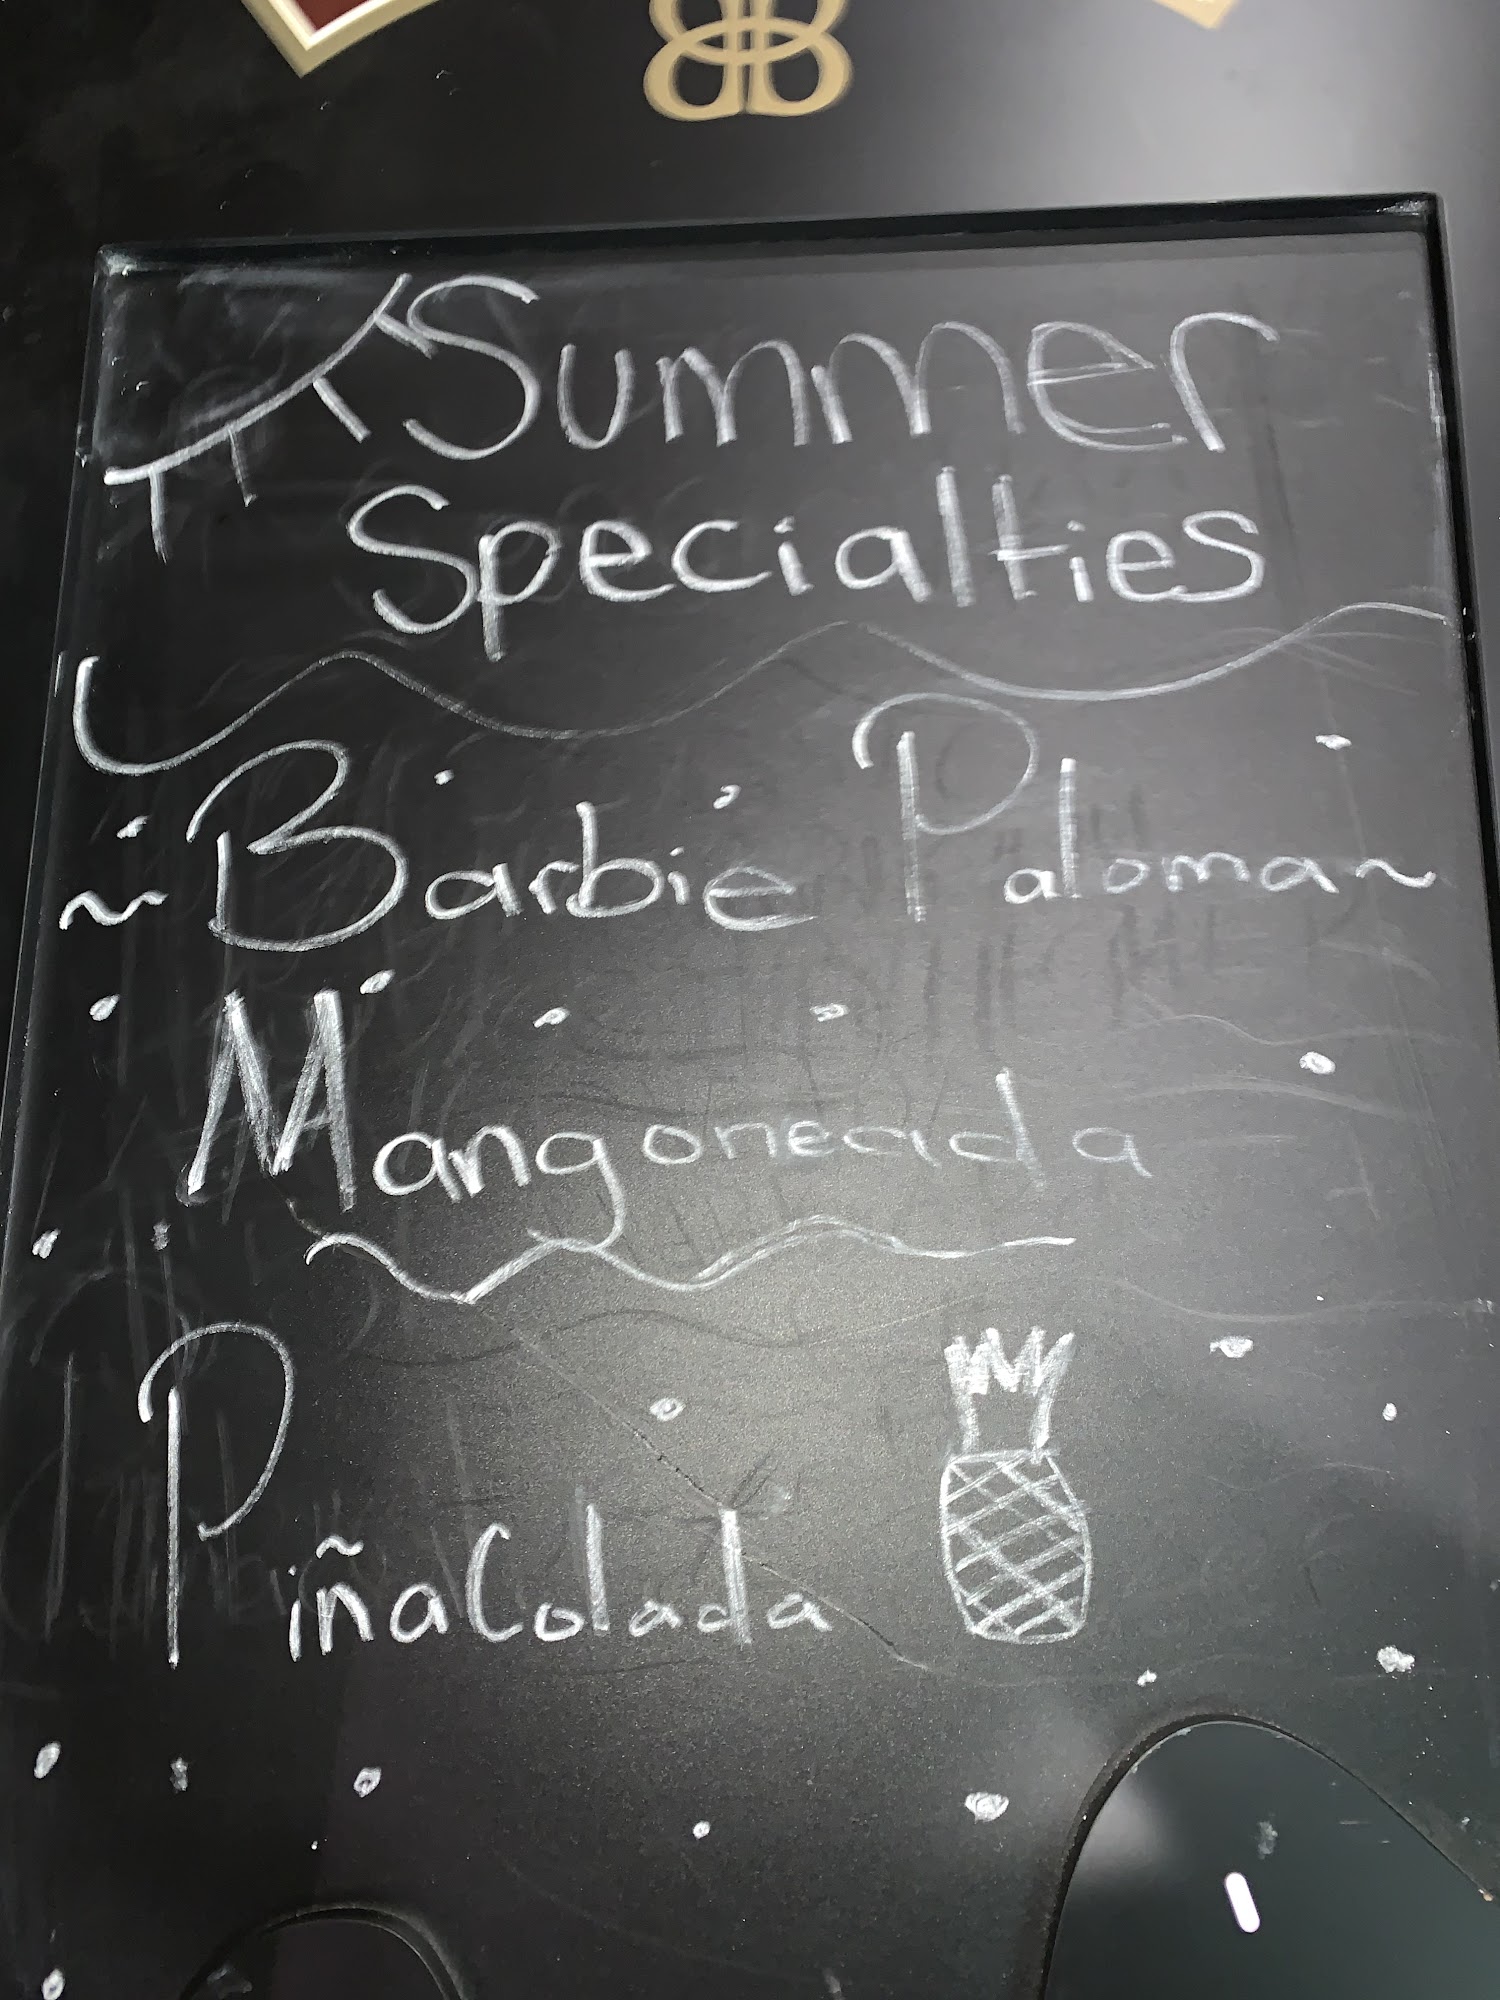 Summer
Specialties
~ Barbie Paloma ~
Mangoneada
Piña Colada